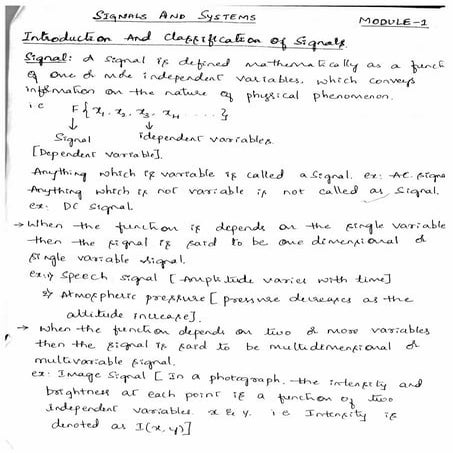 SIGNALS AND SYSTEMS MODULE-1
Introduction And Classification Of Signals
Signal: A signal is defined mathematically as a funct
of one or more independent variables, which conveys
information on the nature of physical phenomenon.
i.e F{x1, x2, x3, xH ....}
Signal independent variables
[Dependent variable].
Anything which is variable is called a signal. ex: AC signa
Anything which is not variable is not called as signal.
ex: DC signal.
→ When the function is depends on the single variable
then the signal is said to be one dimensional or
single variable signal.
ex: 1) Speech signal [Amplitude varies with time]
2) Atmospheric pressure [pressure decreases as the
altitude increase].
→ When the function depends on two or more variables
then the signal is said to be multidimensional or
multivariable signal.
ex: Image Signal [In a photograph, the intensity and
brightness at each point is a function of two
Independent variables. x & y. i.e Intensity is
denoted as I(x, y)]